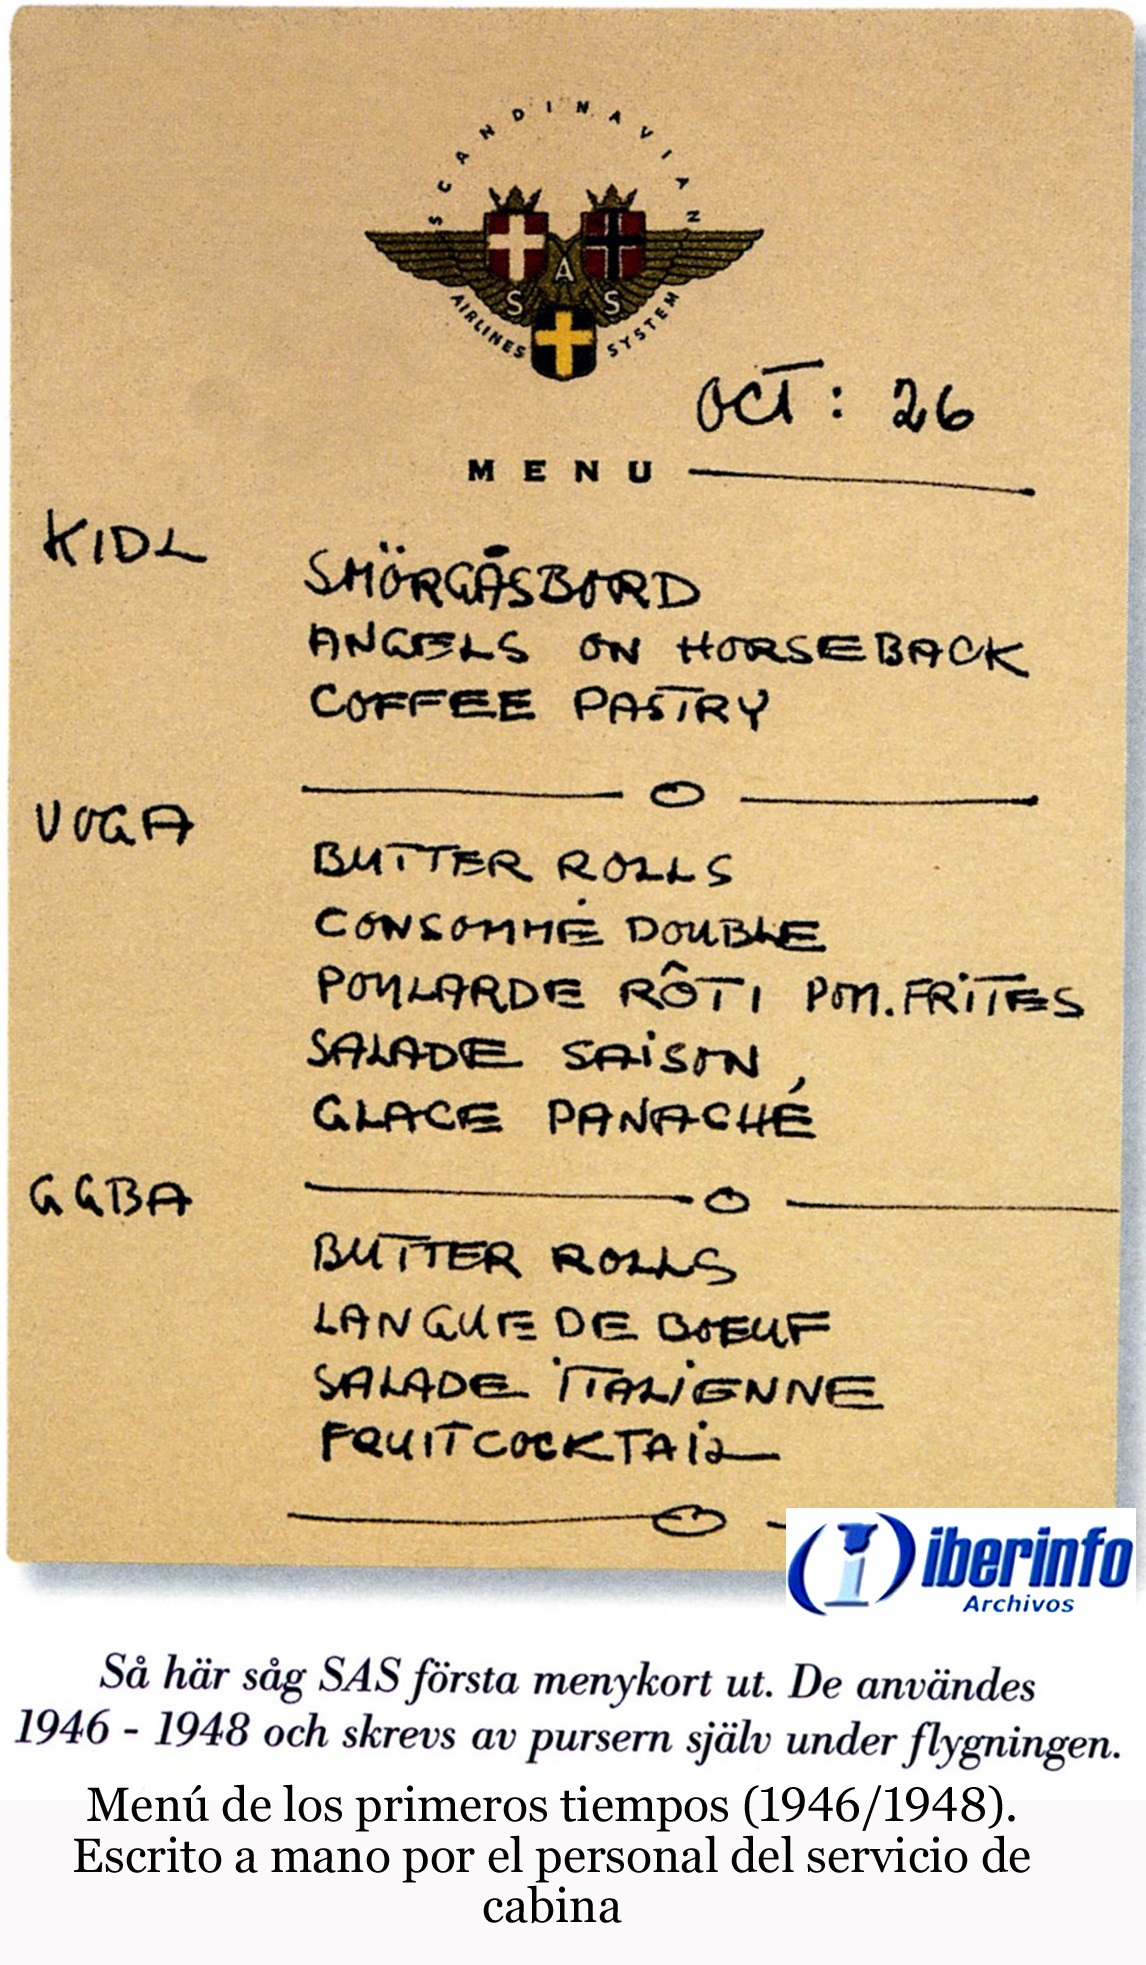 SCANDINAVIAN
S A S
AIRLINES SYSTEM
OCT: 26
MENU
KIDL
SMÖRGÅSBORD
ANGELS ON HORSEBACK
COFFEE PASTRY
VOGA
BUTTER ROLLS
CONSOMMÉ DOUBLE
POULARDE RÔTI POM. FRITES
SALADE SAISON
GLACE PANACHÉ
GGBA
BUTTER ROLLS
LANGUE DE BOEUF
SALADE ITALIENNE
FRUITCOCKTAIL
iberinfo
Archivos
Så här såg SAS första menykort ut. De användes
1946 - 1948 och skrevs av pursern själv under flygningen.
Menú de los primeros tiempos (1946/1948).
Escrito a mano por el personal del servicio de
cabina